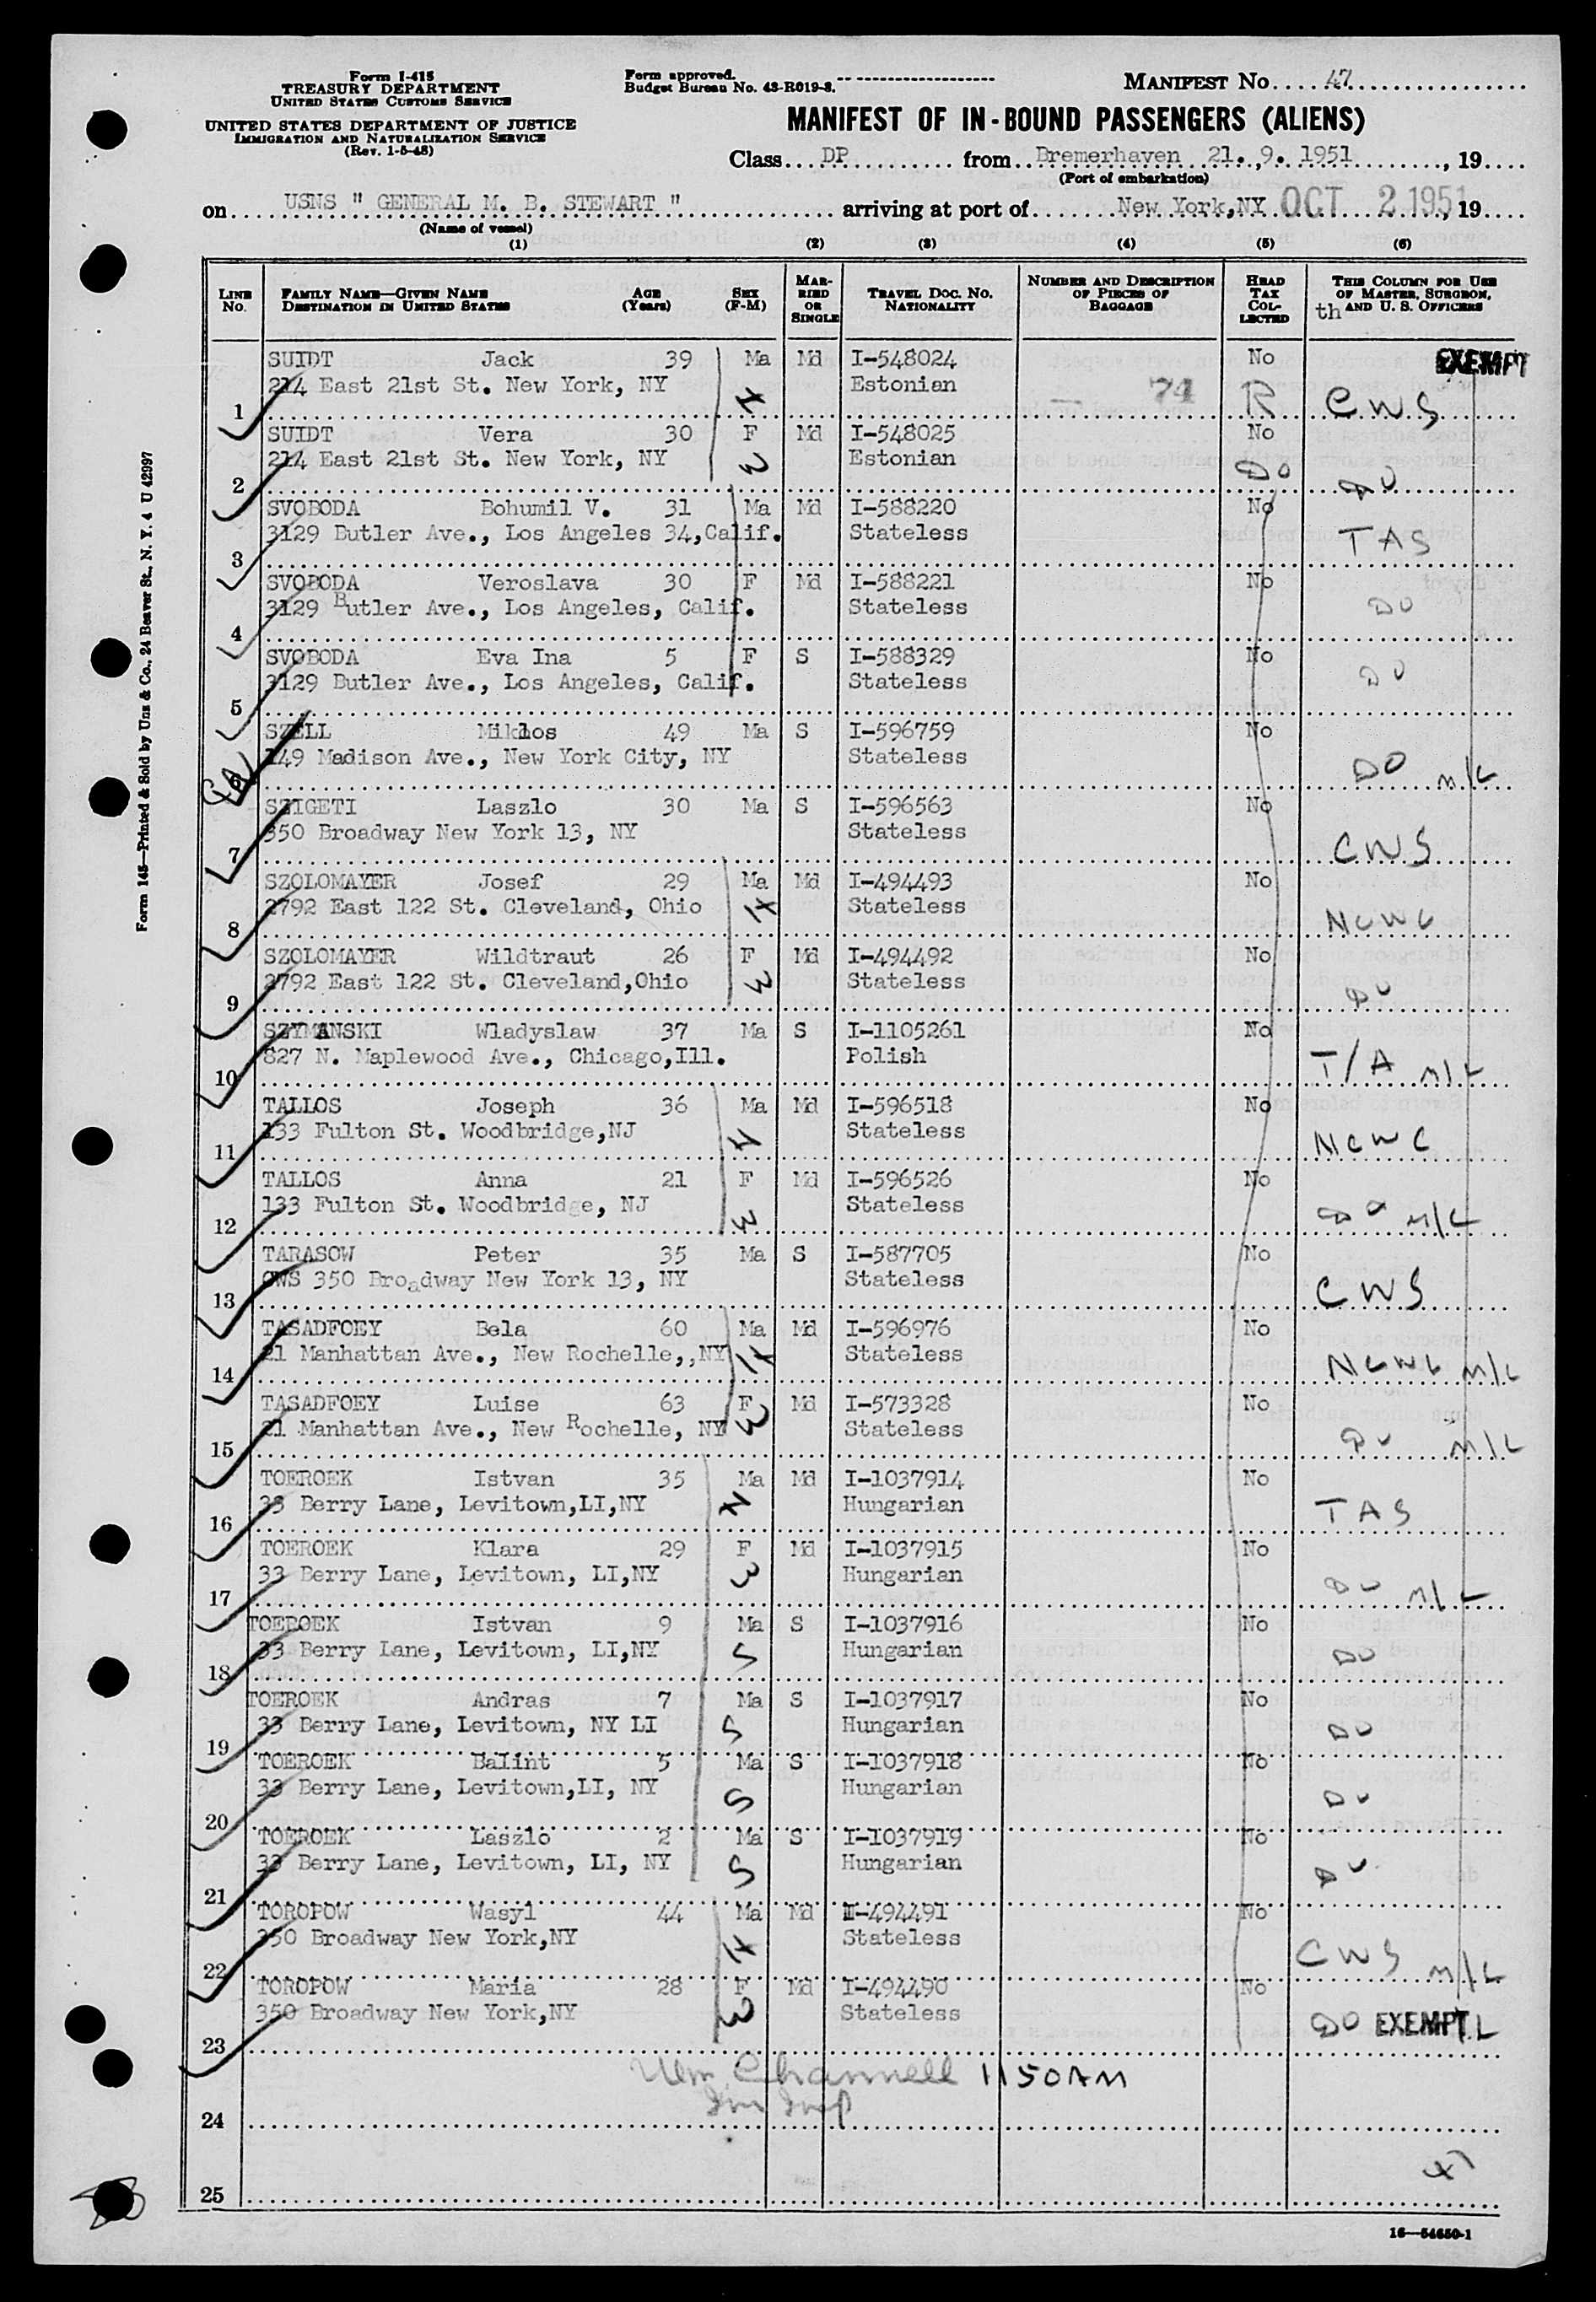 Form I-415
TREASURY DEPARTMENT
UNITED STATES CUSTOMS SERVICE
UNITED STATES DEPARTMENT OF JUSTICE
IMMIGRATION AND NATURALIZATION SERVICE
(Rev. 1-5-48)
Form approved.
Budget Bureau No. 43-R019-3.
MANIFEST No. 47
MANIFEST OF IN-BOUND PASSENGERS (ALIENS)
Class DP from Bremerhaven 21.,9. 1951, 19
(Port of embarkation)
on USNS " GENERAL M. B. STEWART " arriving at port of New York,NY OCT 2 1951, 19
(Name of vessel)
(1) (2) (3) (4) (5) (6)
LINE No. FAMILY NAME—GIVEN NAME DESTINATION IN UNITED STATES AGE (Years) SEX (F-M) MARRIED OR SINGLE TRAVEL DOC. NO. NATIONALITY NUMBER AND DESCRIPTION OF PIECES OF BAGGAGE HEAD TAX COLLECTED THIS COLUMN FOR USE OF MASTER, SURGEON, th AND U. S. OFFICERS
SUIDT Jack 39 Ma Md I-548024 No EXEMPT
214 East 21st St. New York, NY Estonian 74 R CWS
1
SUIDT Vera 30 F Md I-548025 No
214 East 21st St. New York, NY Estonian DO DO
2
SVOBODA Bohumil V. 31 Ma Md I-588220 No
3129 Butler Ave., Los Angeles 34,Calif. Stateless TAS
3
SVOBODA Veroslava 30 F Md I-588221 No
3129 Butler Ave., Los Angeles, Calif. Stateless DO
4
SVOBODA Eva Ina 5 F S I-588329 No
3129 Butler Ave., Los Angeles, Calif. Stateless DO
5
SZELL Miklos 49 Ma S I-596759 No
149 Madison Ave., New York City, NY Stateless DO M/L
6
SZIGETI Laszlo 30 Ma S I-596563 No
350 Broadway New York 13, NY Stateless CWS
7
SZOLOMAYER Josef 29 Ma Md I-494493 No
2792 East 122 St. Cleveland, Ohio Stateless NCWC
8
SZOLOMAYER Wildtraut 26 F Md I-494492 No
2792 East 122 St. Cleveland,Ohio Stateless DO
9
SZYMANSKI Wladyslaw 37 Ma S I-1105261 No
827 N. Maplewood Ave., Chicago,Ill. Polish T/A M/L
10
TALLOS Joseph 36 Ma Md I-596518 No
133 Fulton St. Woodbridge,NJ Stateless NCWC
11
TALLOS Anna 21 F Md I-596526 No
133 Fulton St. Woodbridge, NJ Stateless DO M/L
12
TARASOW Peter 35 Ma S I-587705 No
CWS 350 Broadway New York 13, NY Stateless CWS
13
TASADFOEY Bela 60 Ma Md I-596976 No
21 Manhattan Ave., New Rochelle,,NY Stateless NCWC M/L
14
TASADFOEY Luise 63 F Md I-573328 No
21 Manhattan Ave., New Rochelle, NY Stateless DO M/L
15
TOEROEK Istvan 35 Ma Md I-1037914 No
33 Berry Lane, Levitown,LI,NY Hungarian TAS
16
TOEROEK Klara 29 F Md I-1037915 No
33 Berry Lane, Levitown, LI,NY Hungarian DO M/L
17
TOEROEK Istvan 9 Ma S I-1037916 No
33 Berry Lane, Levitown, LI,NY Hungarian DO
18
TOEROEK Andras 7 Ma S I-1037917 No
33 Berry Lane, Levitown, NY LI Hungarian DO
19
TOEROEK Balint 5 Ma S I-1037918 No
33 Berry Lane, Levitown,LI, NY Hungarian DO
20
TOEROEK Laszlo 2 Ma S I-1037919 No
33 Berry Lane, Levitown, LI, NY Hungarian DO
21
TOROPOW Wasyl 44 Ma Md I-494491 No
350 Broadway New York,NY Stateless CWS M/L
22
TOROPOW Maria 28 F Md I-494490 No
350 Broadway New York,NY Stateless DO EXEMPT L
23
Wm Channell 1150AM
Im Insp
24
25
16—54650-1
Form 145—Printed & Sold by Unz & Co., 24 Beaver St., N. Y. 4 U 42997